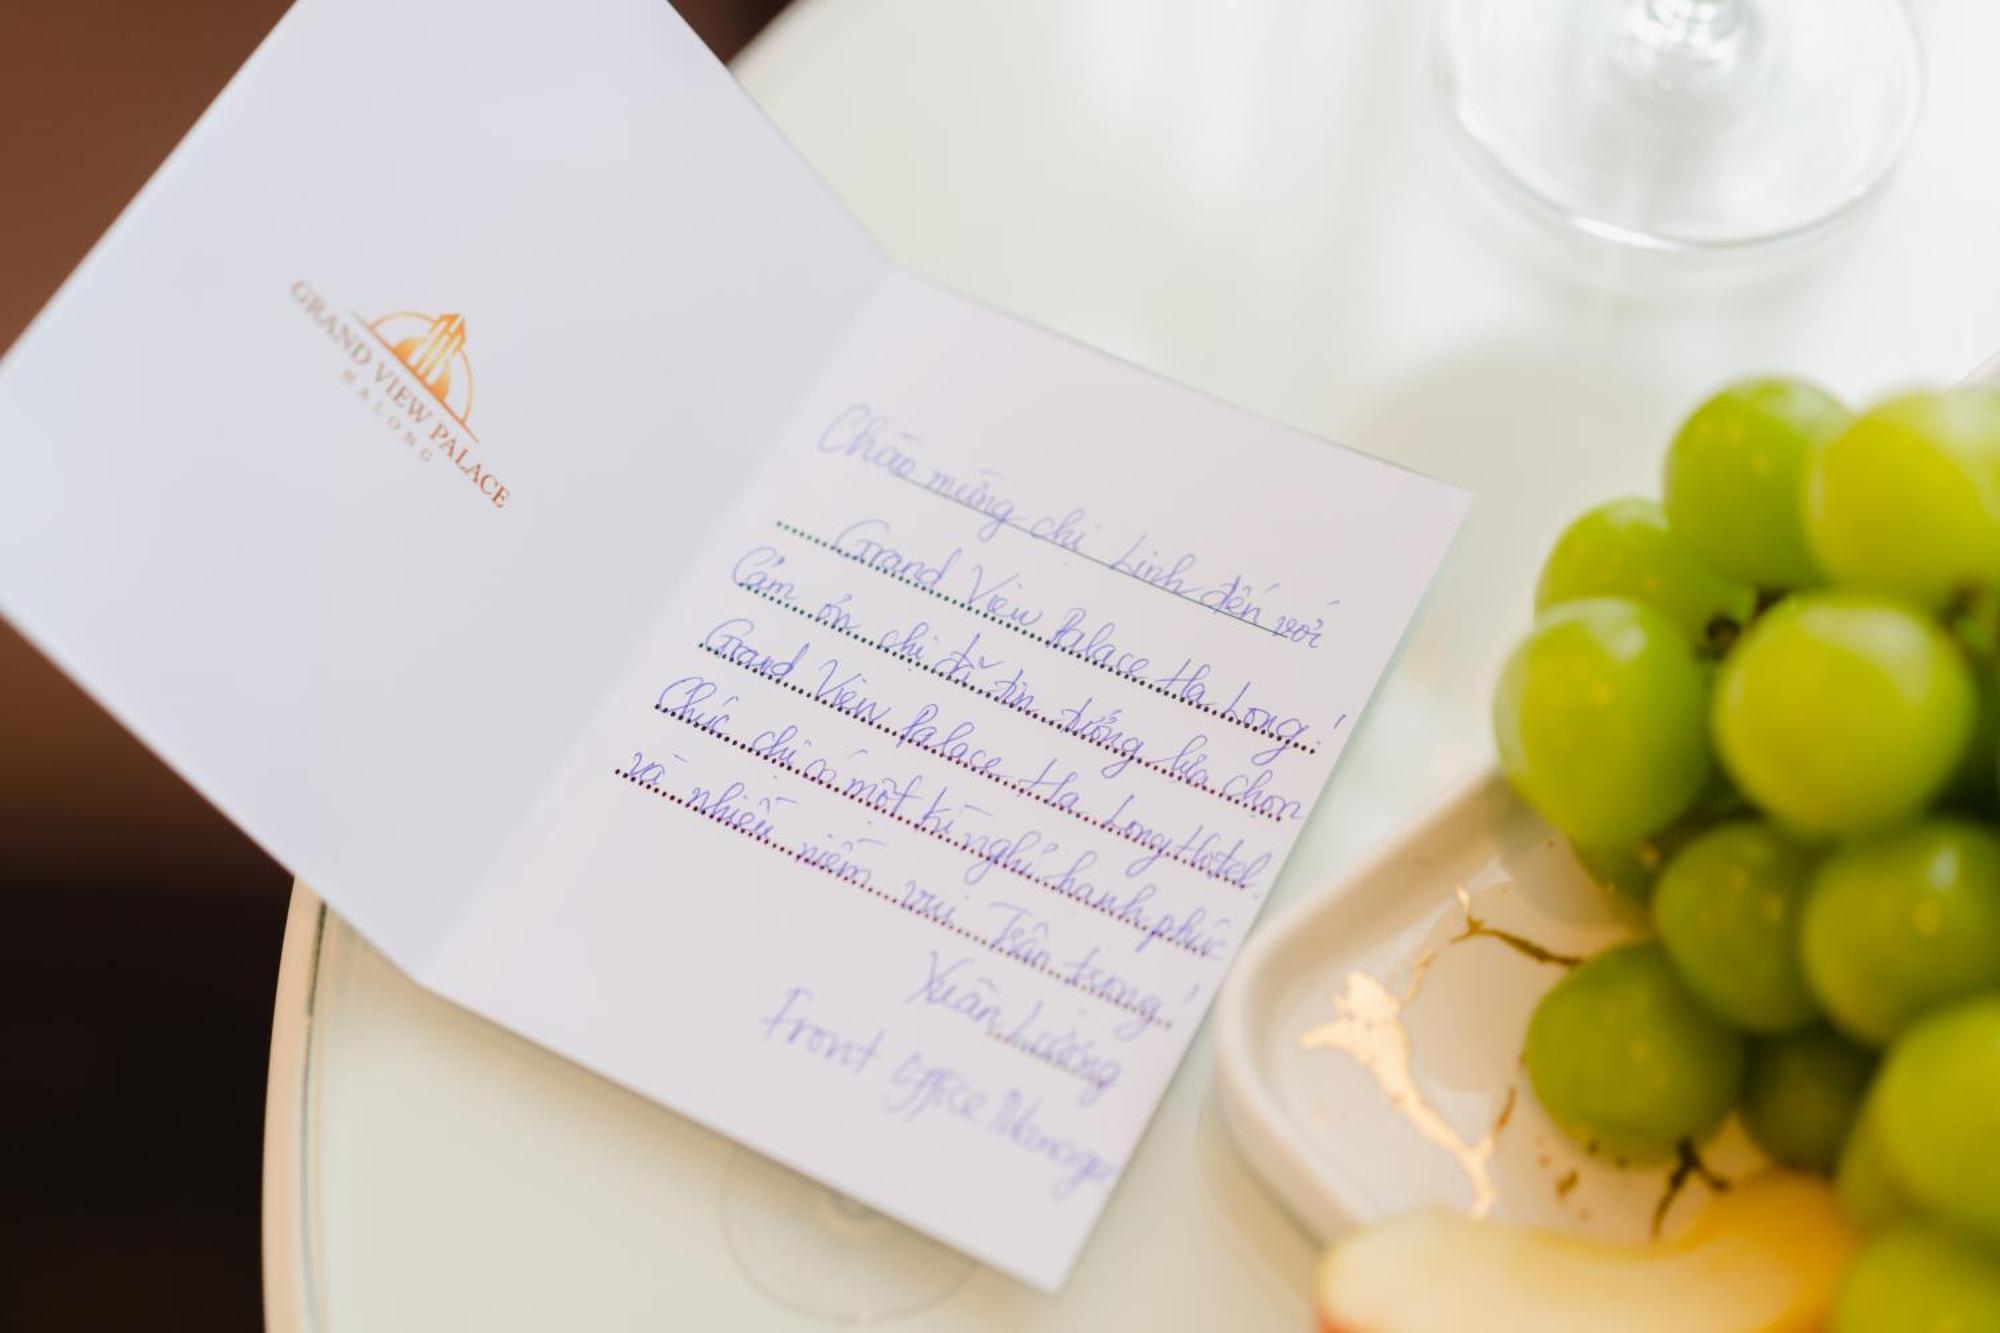 GRAND VIEW PALACE
HALONG
Chào mừng chị Linh đến với
Grand View Palace Ha Long!
Cảm ơn chị đã tin tưởng lựa chọn
Grand View Palace Ha Long Hotel.
Chúc chị có một kì nghỉ hạnh phúc
và nhiều niềm vui. Trân trọng!
Xuân Lương
Front Office Manager